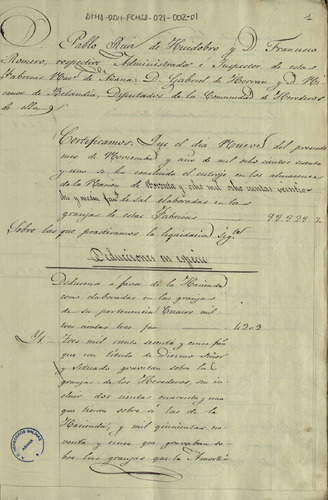 DHAI-DOH-FCHSJ-021-002-01
1
D. Pablo Ruiz de Huidobro y D. Francisco
Romero, respectivo Administrador é Inspector de estas
Fabricas Nac.s de Añana: D. Gabriel de Herran y D. Ni
canor de Belandia, Diputados de la Comunidad de Herederos
de ellas
Certificamos: Que el dia Nueve del presente
mes de Noviembre y año de mil ocho cientos cuenta
y uno se ha concluido el entroje en los almacenes
de la Hacienda de Noventa y ocho mil ocho cientas veinte
y media fan.s de sal elaboradas en las
granjas de estas Fabricas
Sobre las que practicamos la liquidacion sig.te
Deducciones en especie
Deducense á favor de la Hacienda
como elaboradas en las granjas
de su pertenencia Cuatro mil
tres cientas tres fan 4303
Id. tres mil cuata sesenta y cinco fan
que con titulo de Diezmo Señor
y Situado gravitan sobre las
granjas de los Herederos, sin in
cluir dos cuentas cuarenta y una
que tienen sobre si las de la
Hacienda, y mil quinientas no
venta y cinco que gravaban so
bre las granjas que la Amorti-
AÑANA